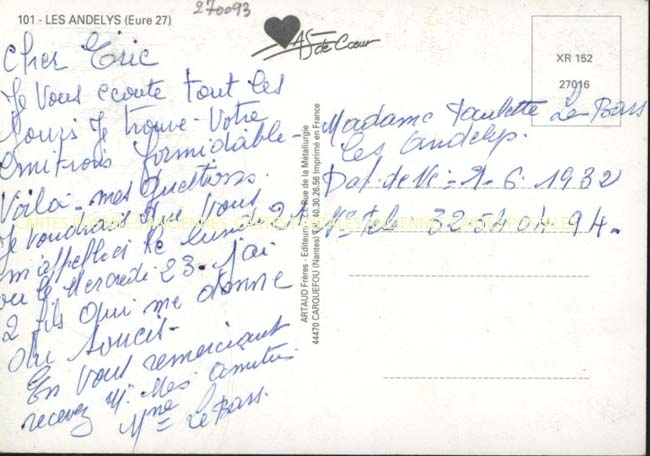 101 - LES ANDELYS (Eure 27)
270093
AS de Cœur
XR 152
27016
Cher Eric
Je Vous ecoute tout les
jours je trouve Votre
emitions formidable -
Voilà - mes questions.
Je voudrais que Vous
m'appellci le lundi 21
ou le Mercredi 23 - j'ai
2 fils qui me donne
du soucis -
En Vous remerciant
recevez M. Mes amities
Mme Le Bars.
ARTAUD Frères - Editeurs - Rue de la Métallurgie
44470 CARQUEFOU (Nantes) Tél. 40.30.26.56 Imprimé en France
Madame Paulette Le Bars
Les Andelys.
Dat. de N. - 2 - 6. 1932
N° Tel. 32.54.04.94.
CARTES POSTALES ANCIENNES